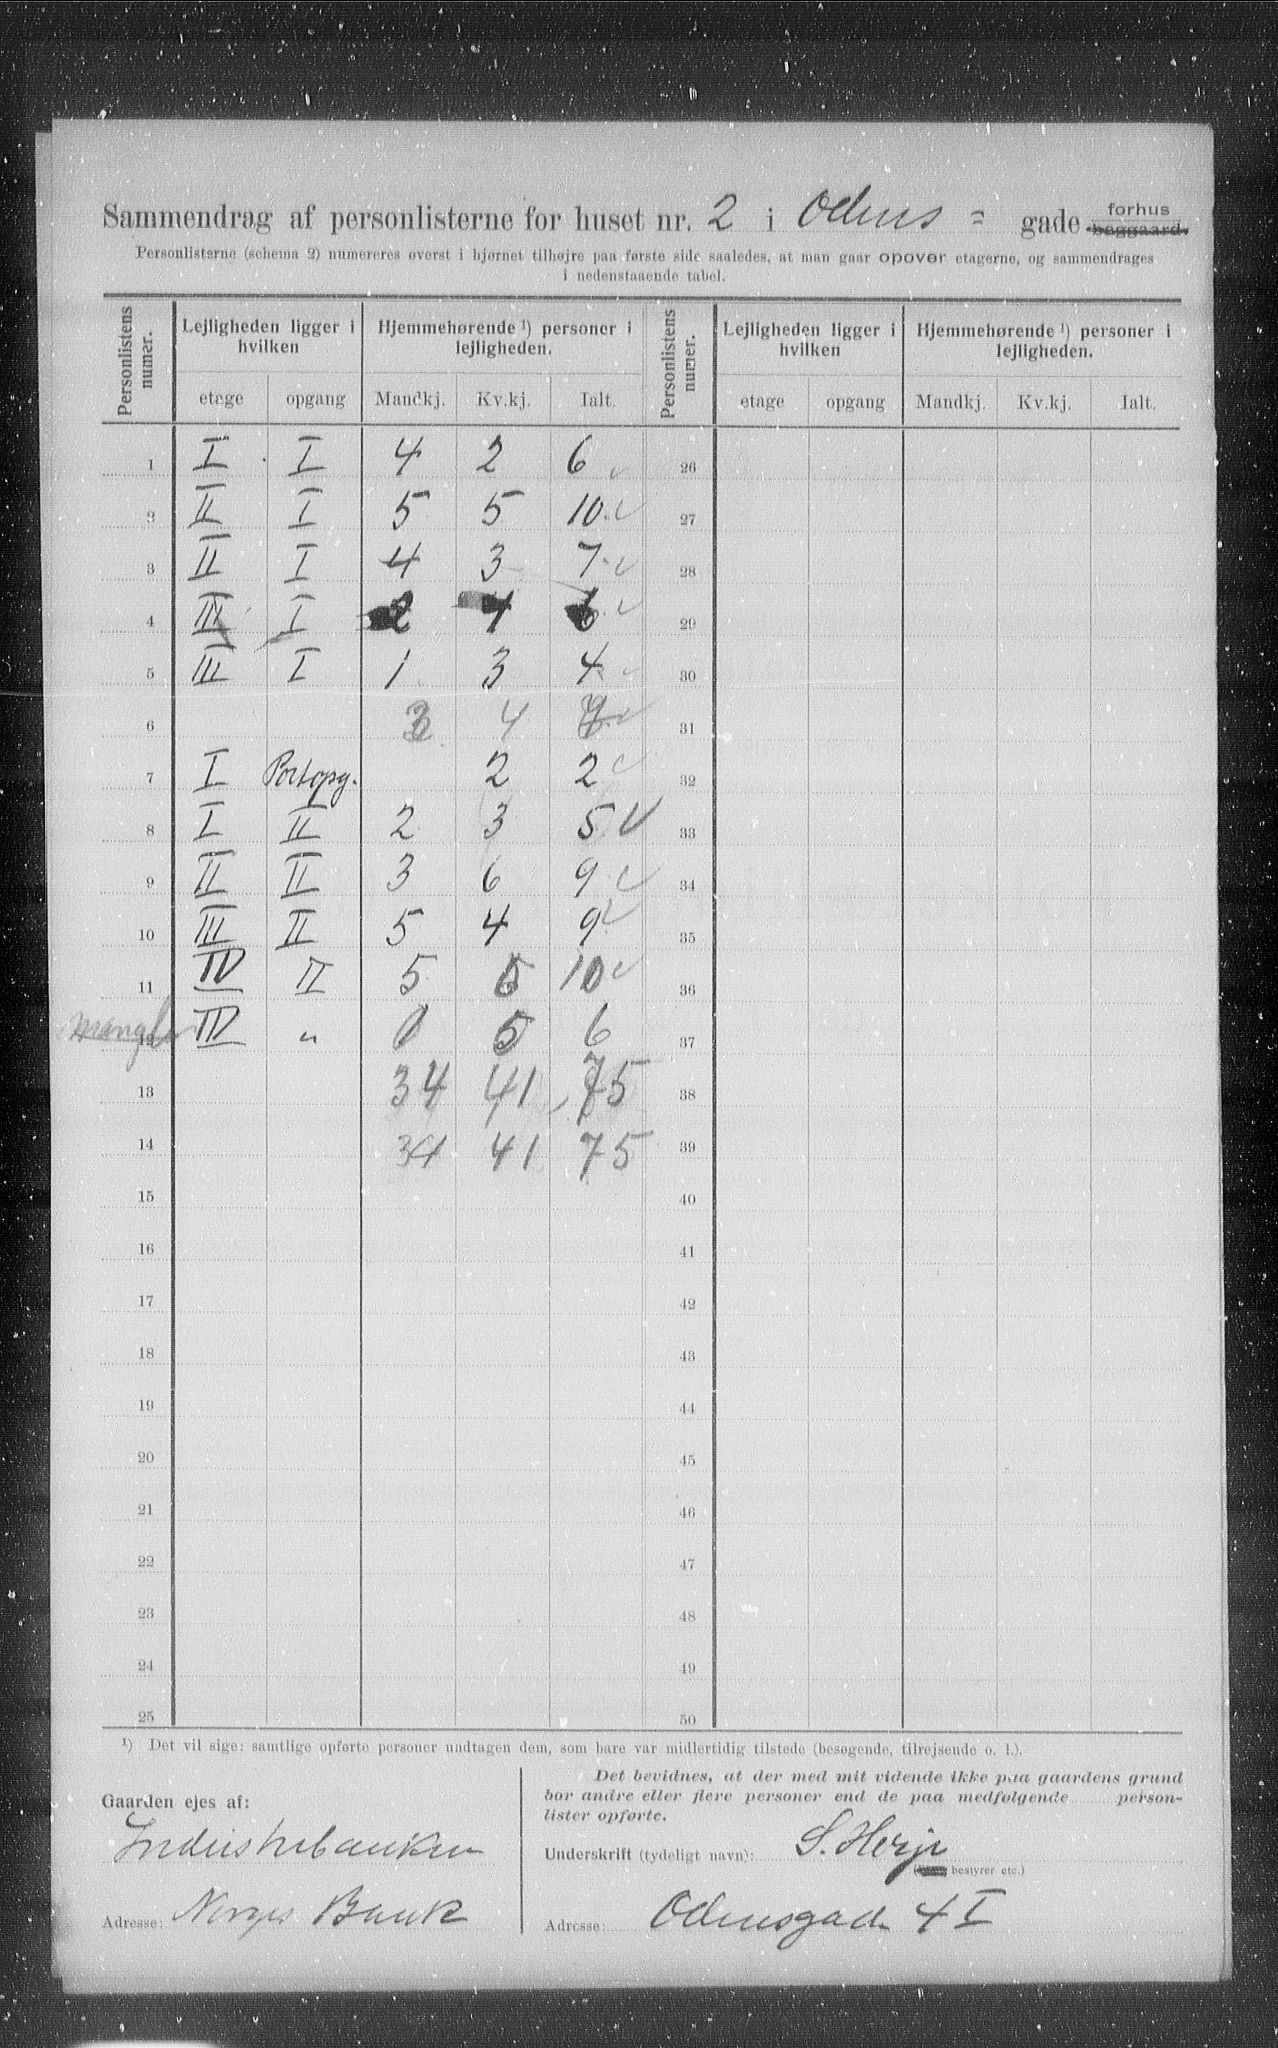 Sammendrag af personlisterne for huset nr. 2 i Odins = gade forhus baggaard.
Personlisterne (schema 2) numereres øverst i hjørnet tilhøjre paa første side saaledes, at man gaar opover etagerne, og sammendrages
i nedenstaaende tabel.
Personlistens numer. Lejligheden ligger i hvilken Hjemmehørende ¹) personer i lejligheden. Personlistens numer. Lejligheden ligger i hvilken Hjemmehørende ¹) personer i lejligheden.
etage opgang Mandkj. Kv.kj. Ialt. etage opgang Mandkj. Kv.kj. Ialt.
1 I I 4 2 6 26
2 II I 5 5 10 27
3 II I 4 3 7 28
4 III I 2 1 3 29
5 III I 1 3 4 30
6 4 31
7 I Portopg. 2 2 32
8 I II 2 3 5 33
9 II II 3 6 9 34
10 III II 5 4 9 35
11 IV II 5 5 10 36
mangler 12 IV " 5 6 37
13 34 41 75 38
14 34 41 75 39
15 40
16 41
17 42
18 43
19 44
20 45
21 46
22 47
23 48
24 49
25 50
¹) Det vil sige: samtlige opførte personer undtagen dem, som bare var midlertidig tilstede (besøgende, tilrejsende o. l.).
Gaarden ejes af:
Industribanken
Adresse: Norges Bank
Det bevidnes, at der med mit vidende ikke paa gaardens grund
bor andre eller flere personer end de paa medfølgende person-
lister opførte.
Underskrift (tydeligt navn): S. Herje
bestyrer etc.)
Adresse: Odinsgade 4 I